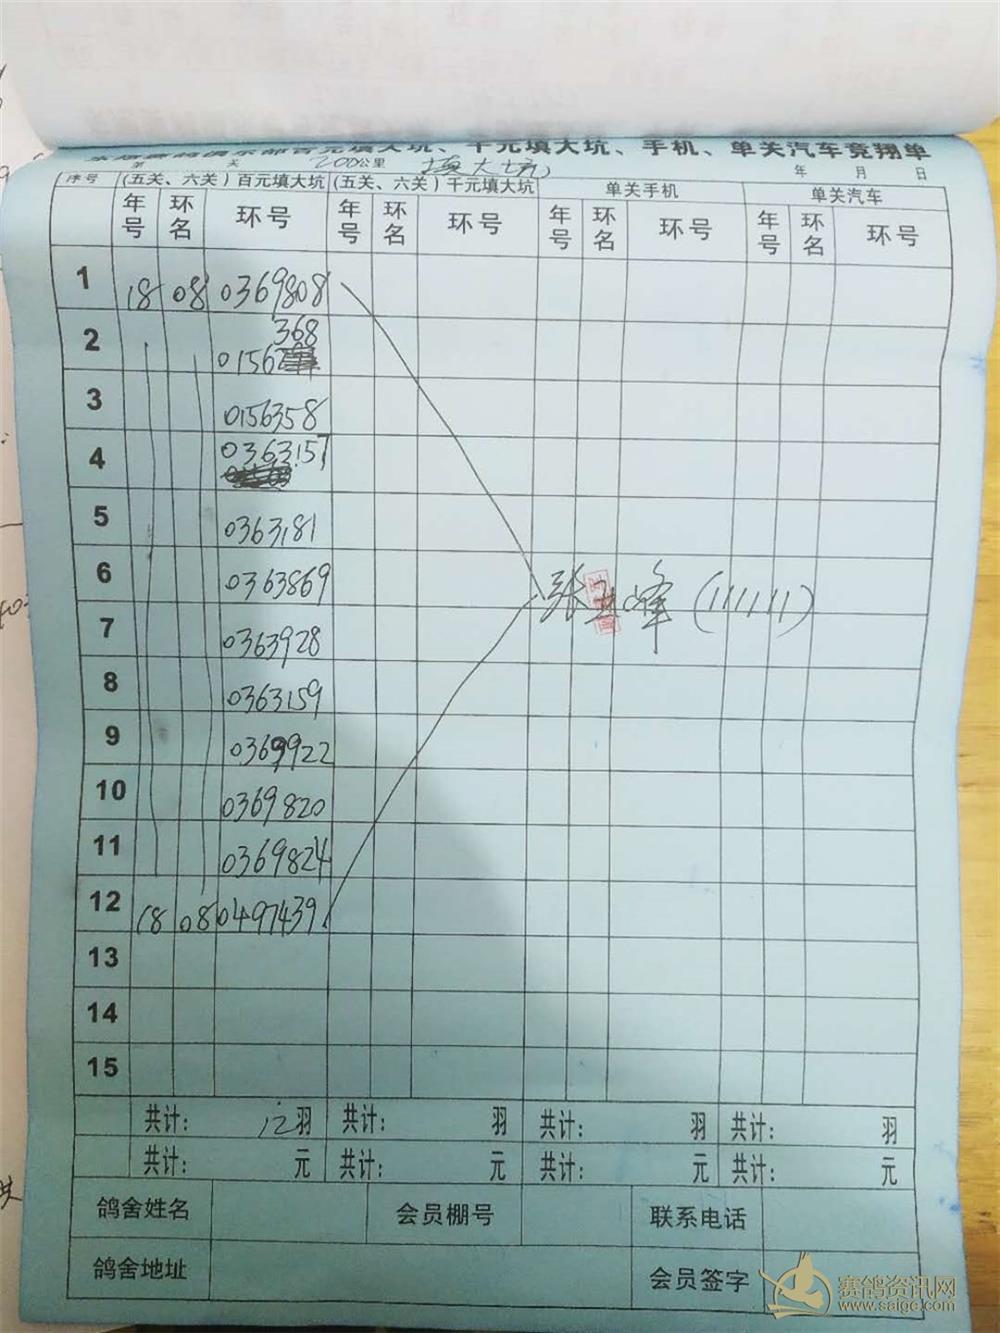 百元填大坑、千元填大坑、手机、单关汽车竞翔单
关 200公里 填大坑 年 月 日
序号 (五关、六关)百元填大坑 (五关、六关)千元填大坑 单关手机 单关汽车
年号 环名 环号 年号 环名 环号 年号 环名 环号 年号 环名 环号
1 18 08 0369808
368
2 0156
3 0156358
4 0363157
5 0363181
6 0363869
张 峰 (111111)
7 0363928
8 0363159
9 0369922
10 0369820
11 0369824
12 18 08 0497439
13
14
15
共计: 12羽 共计: 羽 共计: 羽 共计: 羽
共计: 元 共计: 元 共计: 元 共计: 元
鸽舍姓名 会员棚号 联系电话
鸽舍地址 会员签字
赛鸽资讯网
www.saige.com